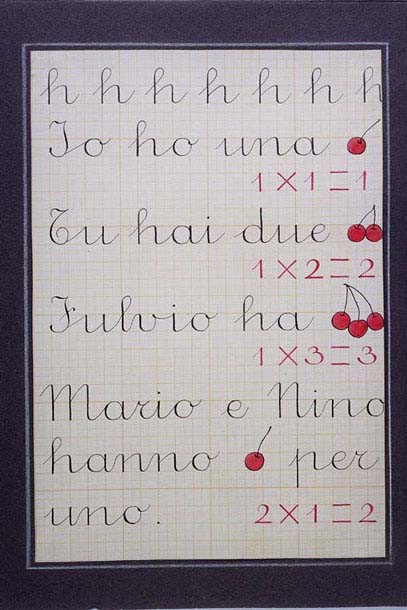 h h h h h h h
Io ho una
1 × 1 = 1
Tu hai due
1 × 2 = 2
Fulvio ha
1 × 3 = 3
Mario e Nino
hanno per
uno. 2 × 1 = 2